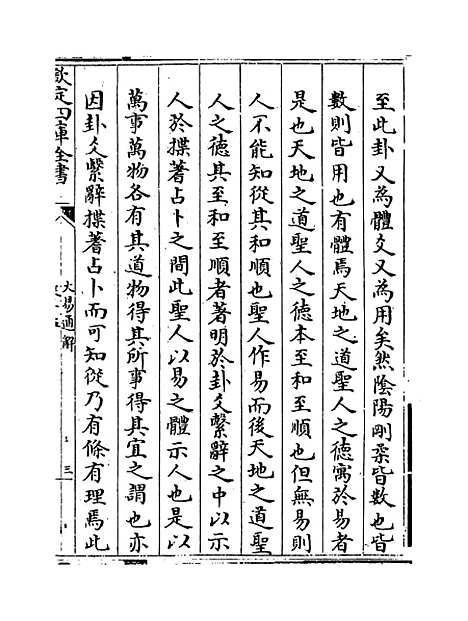 至此卦又為體爻又為用矣然陰陽剛柔皆數也皆
數則皆用也有體焉天地之道聖人之德寓於易者
是也天地之道聖人之德本至和至順也但無易則
人不能知從其和順也聖人作易而後天地之道聖
人之德其至和至順者著明於卦爻繫辭之中以示
人於揲蓍占卜之間此聖人以易之體示人也是以
萬事萬物各有其道物得其所事得其宜之謂也亦
因卦爻繫辭揲蓍占卜而可知從乃有條有理焉此
欽定四庫全書
大易通解
三